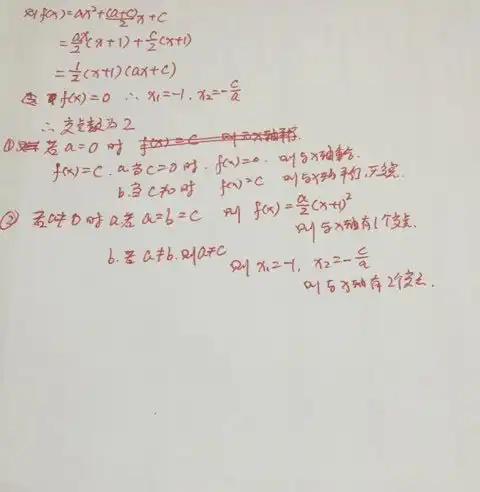 则f(x)=ax²+(a+c)/2 x+c
=ax/2(x+1)+c/2(x+1)
=1/2(x+1)(ax+c)
f(x)=0 ∴ x₁=-1, x₂=-c/a
∴ 交点数为2
① 若a=0时 f(x)=C 则与x轴平行.
f(x)=C. a.当c=0时. f(x)=0. 则与x轴重合.
b.当c≠0时 f(x)=C 则与x轴平行,无交.
② 若a≠0时 a.若a=b=c 则 f(x)=a/2(x+1)²
则与x轴有1个交点.
b.若a≠b.则a≠c 则x₁=-1, x₂=-c/a
则与x轴有2个交点.